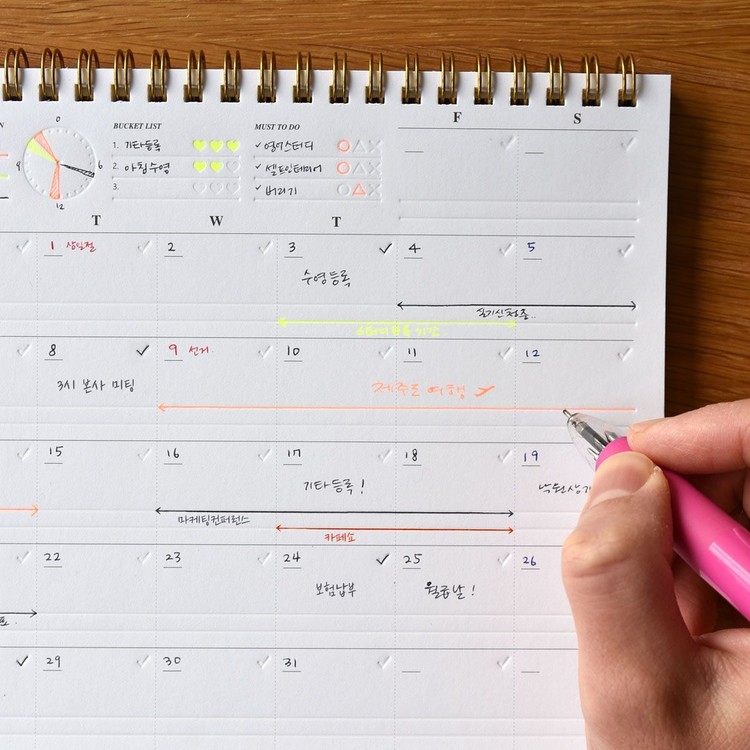 0
BUCKET LIST
MUST TO DO
F
S
1. 기타등록
✓ 영어스터디
9
6
2. 아침수영
✓ 셀프인테리어
3.
✓ 버리기
12
T
W
T
1 삼일절
2
3
4
5
수영등록
8
9 선거
10
11
12
3시 본사 미팅
제주도 여행
15
16
17
18
19
기타등록!
마케팅컨퍼런스
카페쇼
22
23
24
25
26
보험납부
월급날!
29
30
31